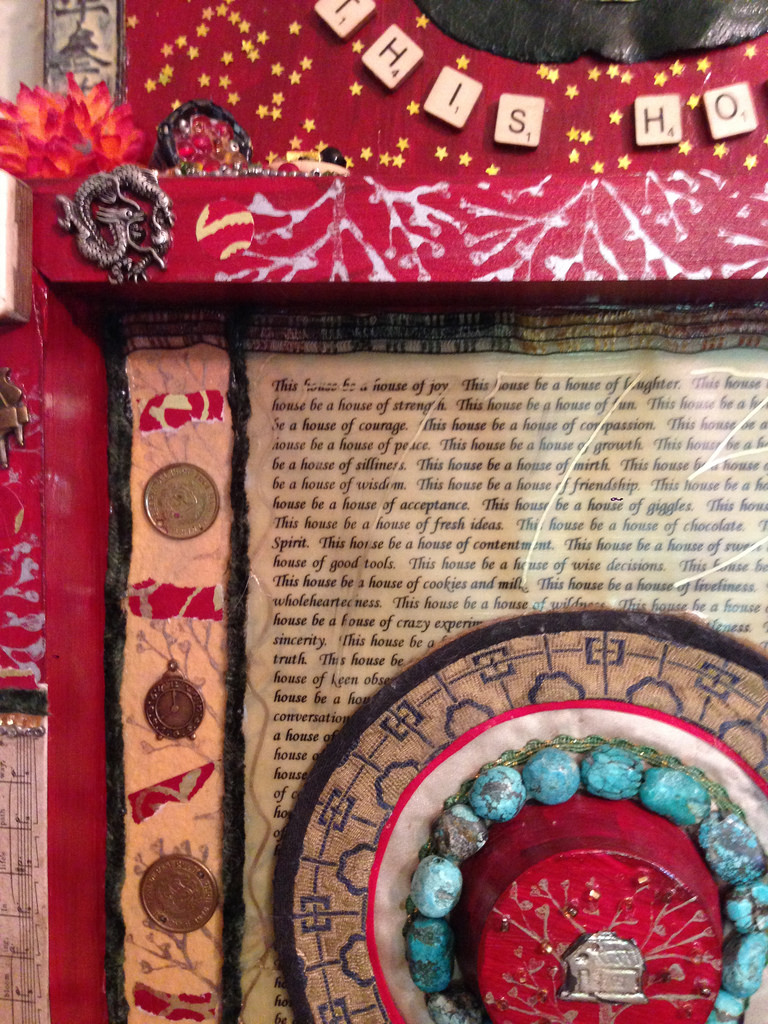 THIS HO
This house be a house of joy. This house be a house of laughter. This house
house be a house of strength. This house be a house of fun. This house be a
be a house of courage. This house be a house of compassion. This house be a
house be a house of peace. This house be a house of growth. This house
be a house of silliness. This house be a house of mirth. This house be a
be a house of wisdom. This house be a house of friendship. This house be a
house be a house of acceptance. This house be a house of giggles. This
This house be a house of fresh ideas. This house be a house of chocolate.
Spirit. This house be a house of contentment. This house be a house of
house of good tools. This house be a house of wise decisions. This house be
This house be a house of cookies and milk. This house be a house of liveliness.
wholeheartedness. This house be a house of wildness. This house be a house
house be a house of crazy
sincerity. This house be a
truth. This house be
house of keen
house be a
conversation
a house of
house
house
house